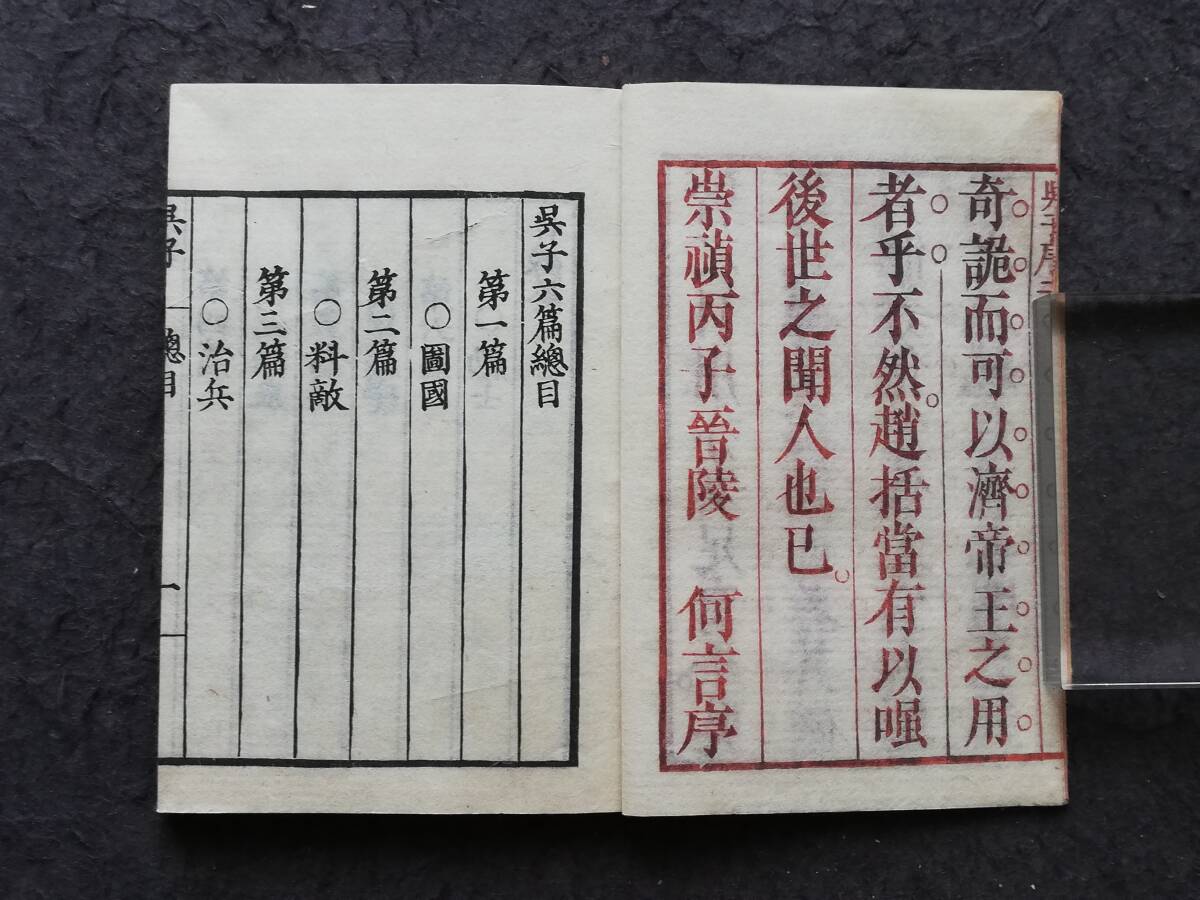 吳子序
奇詭而可以濟帝王之用
者乎不然。趙括當有以
後世之聞人也已。
崇禎丙子晉陵 何言序
吳子六篇總目
第一篇
○圖國
第二篇
○料敵
第三篇
○治兵
吳子 總目 一